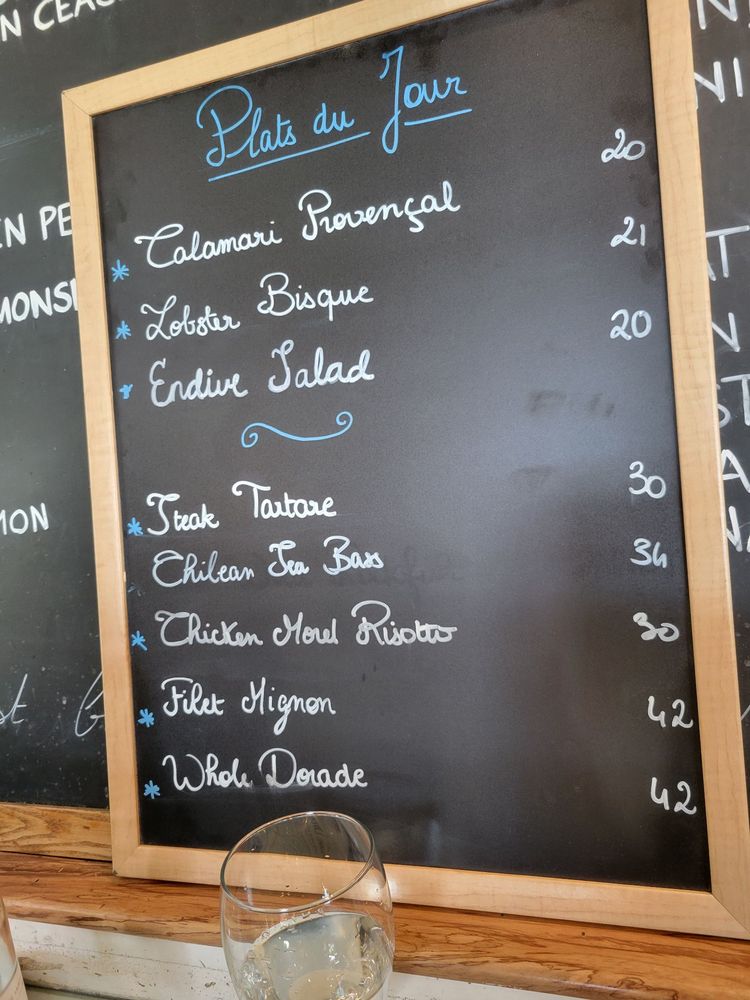 Plats du Jour
* Calamari Provençal 20
* Lobster Bisque 21
* Endive Salad 20
* Steak Tartare 30
Chilean Sea Bass 34
* Chicken Morel Risotto 30
* Filet Mignon 42
* Whole Dorade 42